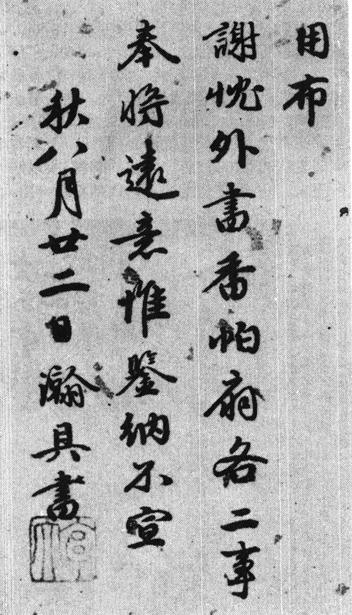 用布
謝愧外書香帕扇各二事
奉將遠意惟鑒納不宣
秋八月廿二日瀚具書